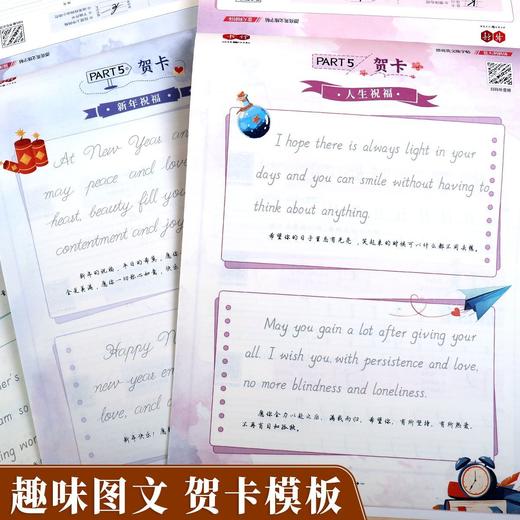 PART 5 贺卡
新年祝福
At New Year and
may peace and love
heart, beauty fill you
contentment and joy
Happy New
new year en
love, and
PART 5 贺卡
人生祝福
I hope there is always light in your
days and you can smile without having to
think about anything.
希望你的日子里总有光亮，笑起来的时候可以什么都不用去想。
May you gain a lot after giving your
all. I wish you, with persistence and love,
no more blindness and loneliness.
愿你全力以赴之后，满载而归，希望你，有所坚持，有所热爱，
不再盲目和孤独。
er's
am so
ing wor
趣味图文 贺卡模板